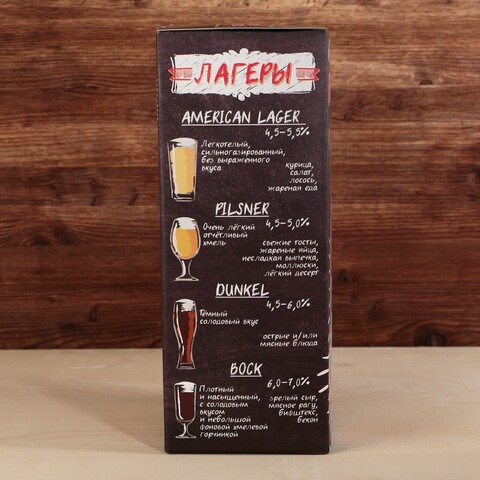 ЛАГЕРЫ
AMERICAN LAGER
4,5-5,5%
Легкотелый,
сильногазированный,
без выраженного
вкуса
курица,
салат,
лосось,
жареная еда
PILSNER
4,5-5,0%
Очень лёгкий
отчётливый
хмель
свежие тосты,
жареные яйца,
несладкая выпечка,
моллюски,
лёгкий десерт
DUNKEL
4,5-6,0%
Тёмный
солодовый вкус
острые и/или
мясные блюда
BOCK
6,0-7,0%
Плотный
и насыщенный,
с солодовым
вкусом
и небольшой
фоновой хмелевой
горчинкой
зрелый сыр,
мясное рагу,
бифштекс,
бекон